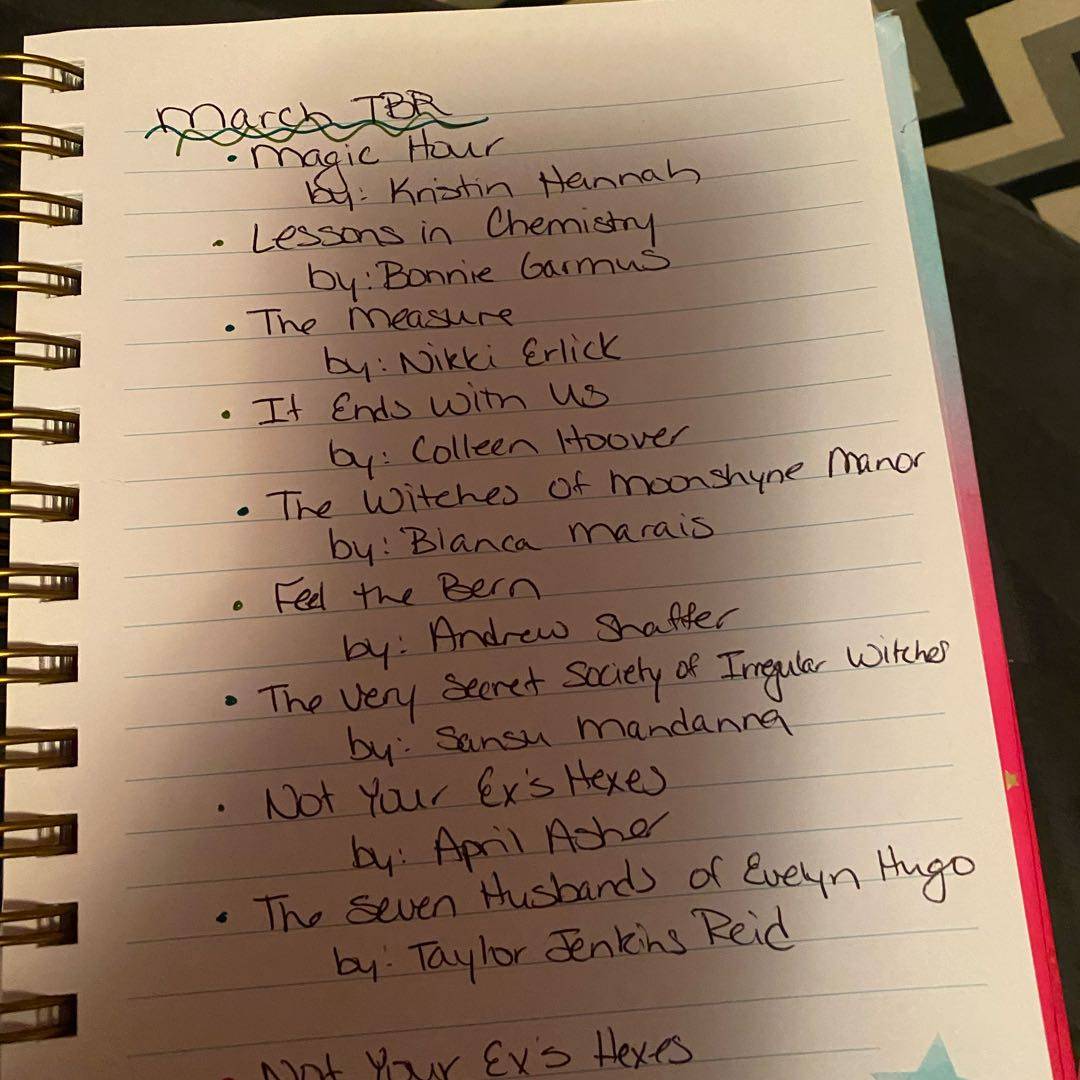 March TBR
• Magic Hour
by: Kristin Hannah
• Lessons in Chemistry
by: Bonnie Garmus
• The Measure
by: Nikki Erlick
• It Ends With Us
by: Colleen Hoover
• The Witches of Moonshyne Manor
by: Bianca Marais
• Feel the Bern
by: Andrew Shaffer
• The Very Secret Society of Irregular Witches
by: Sansu Mandanna
• Not Your Ex's Hexes
by: April Asher
• The Seven Husbands of Evelyn Hugo
by: Taylor Jenkins Reid
• Not Your Ex's Hexes